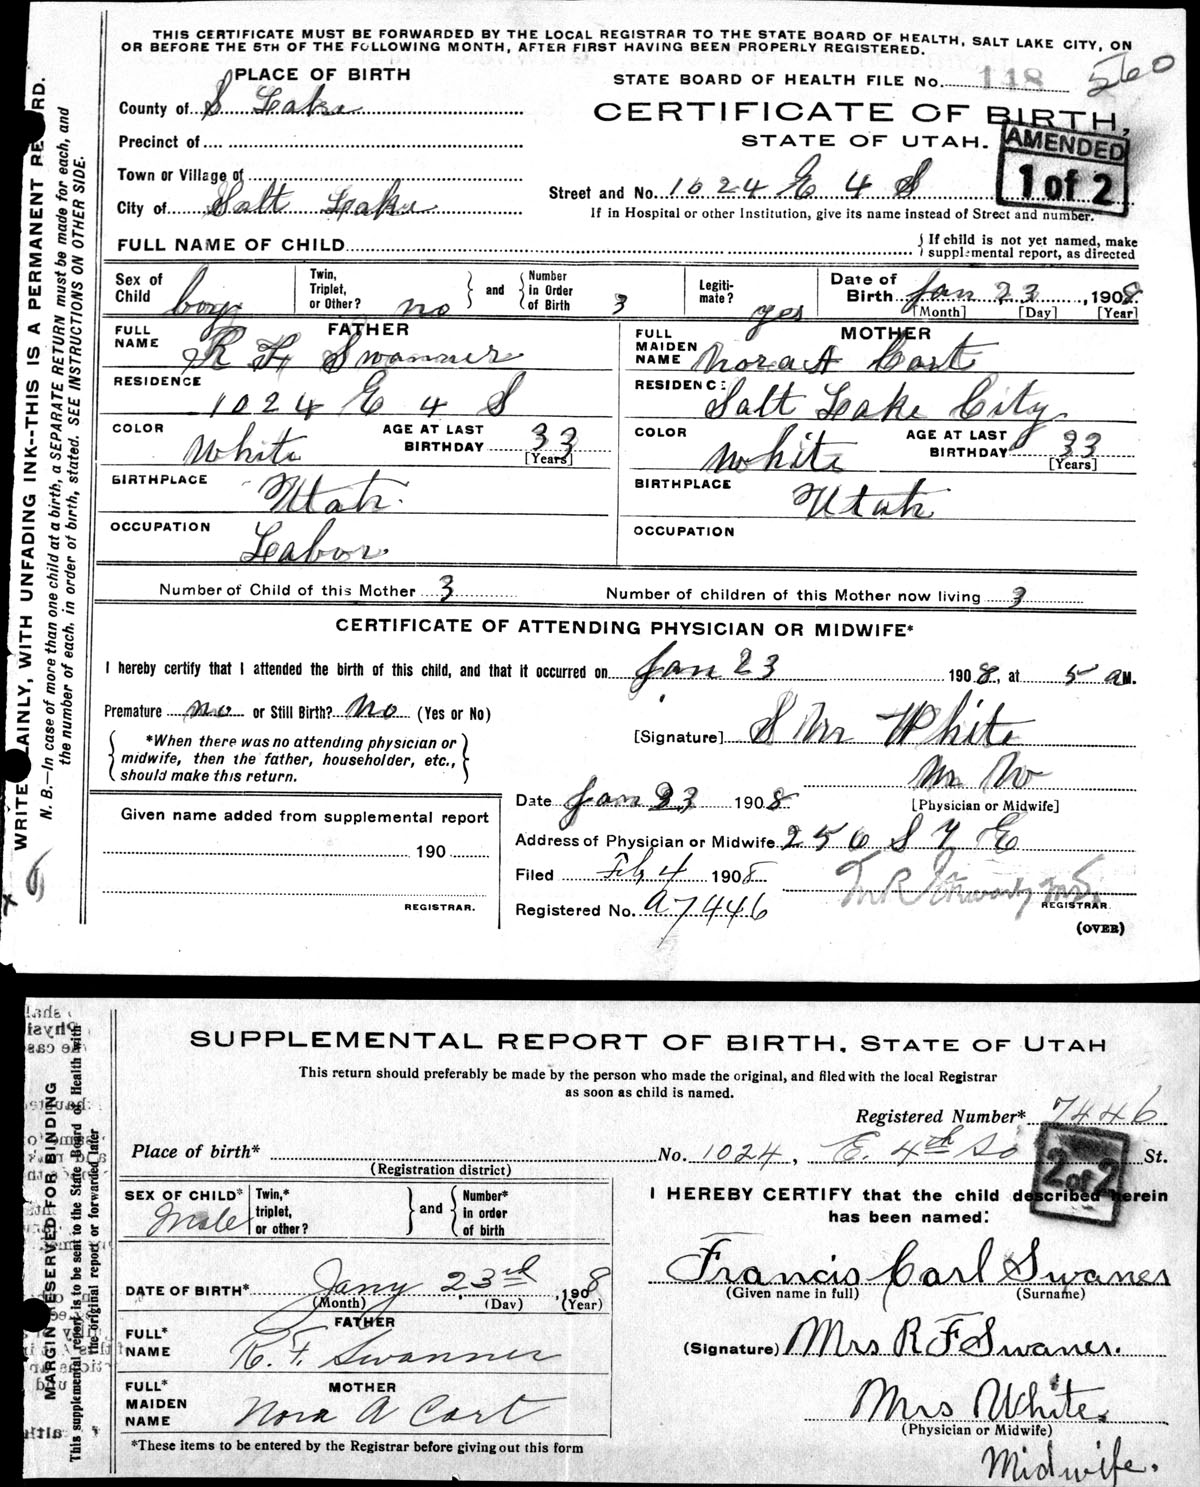 THIS CERTIFICATE MUST BE FORWARDED BY THE LOCAL REGISTRAR TO THE STATE BOARD OF HEALTH, SALT LAKE CITY, ON
OR BEFORE THE 5TH OF THE FOLLOWING MONTH, AFTER FIRST HAVING BEEN PROPERLY REGISTERED.
PLACE OF BIRTH
STATE BOARD OF HEALTH FILE No. 148 560
County of S Lake
CERTIFICATE OF BIRTH,
Precinct of
STATE OF UTAH.
AMENDED
1 of 2
Town or Village of
Street and No. 1024 E 4 S
City of Salt Lake
If in Hospital or other Institution, give its name instead of Street and number.
FULL NAME OF CHILD
{ If child is not yet named, make
supplemental report, as directed
Sex of Child boy
Twin, Triplet, or Other? no } and { Number in Order of Birth 3
Legitimate? yes
Date of Birth Jan 23, 1908
[Month] [Day] [Year]
FATHER
FULL NAME R F Swanner
MOTHER
FULL MAIDEN NAME Nora A Cart
RESIDENCE 1024 E 4 S
RESIDENCE Salt Lake City
COLOR White AGE AT LAST BIRTHDAY 33 [Years]
COLOR white AGE AT LAST BIRTHDAY 33 [Years]
BIRTHPLACE Utah
BIRTHPLACE Utah
OCCUPATION Labor
OCCUPATION
Number of Child of this Mother 3 Number of children of this Mother now living 3
CERTIFICATE OF ATTENDING PHYSICIAN OR MIDWIFE*
I hereby certify that I attended the birth of this child, and that it occurred on Jan 23 1908, at 5 a M.
Premature no or Still Birth? no (Yes or No)
*When there was no attending physician or
midwife, then the father, householder, etc.,
should make this return.
[Signature] White
[Physician or Midwife]
Date Jan 23 1908
Given name added from supplemental report
190
REGISTRAR.
Address of Physician or Midwife 256 S 7 E
Filed Feb 4 1908
REGISTRAR.
Registered No. A7446
(OVER)
WRITE PLAINLY, WITH UNFADING INK--THIS IS A PERMANENT RECORD.
N. B.—In case of more than one child at a birth, a SEPARATE RETURN must be made for each, and
the number of each, in order of birth, stated. SEE INSTRUCTIONS ON OTHER SIDE.
SUPPLEMENTAL REPORT OF BIRTH, STATE OF UTAH
This return should preferably be made by the person who made the original, and filed with the local Registrar
as soon as child is named.
Registered Number* 7446
Place of birth* No. 1024, E. 4th So St.
(Registration district)
2 of 2
SEX OF CHILD* Male
Twin,* triplet, or other? } and { Number* in order of birth
I HEREBY CERTIFY that the child described herein
has been named:
DATE OF BIRTH* Jany 23rd, 1908
(Month) (Day) (Year)
Francis Carl Swaner
(Given name in full) (Surname)
FATHER
FULL* NAME R. F. Swanner
(Signature) Mrs R F Swaner.
MOTHER
FULL* MAIDEN NAME Nora A Cart
Mrs White.
(Physician or Midwife)
Midwife.
*These items to be entered by the Registrar before giving out this form
MARGIN RESERVED FOR BINDING
This supplemental report is to be sent to the State Board of Health with
the original report or forwarded later